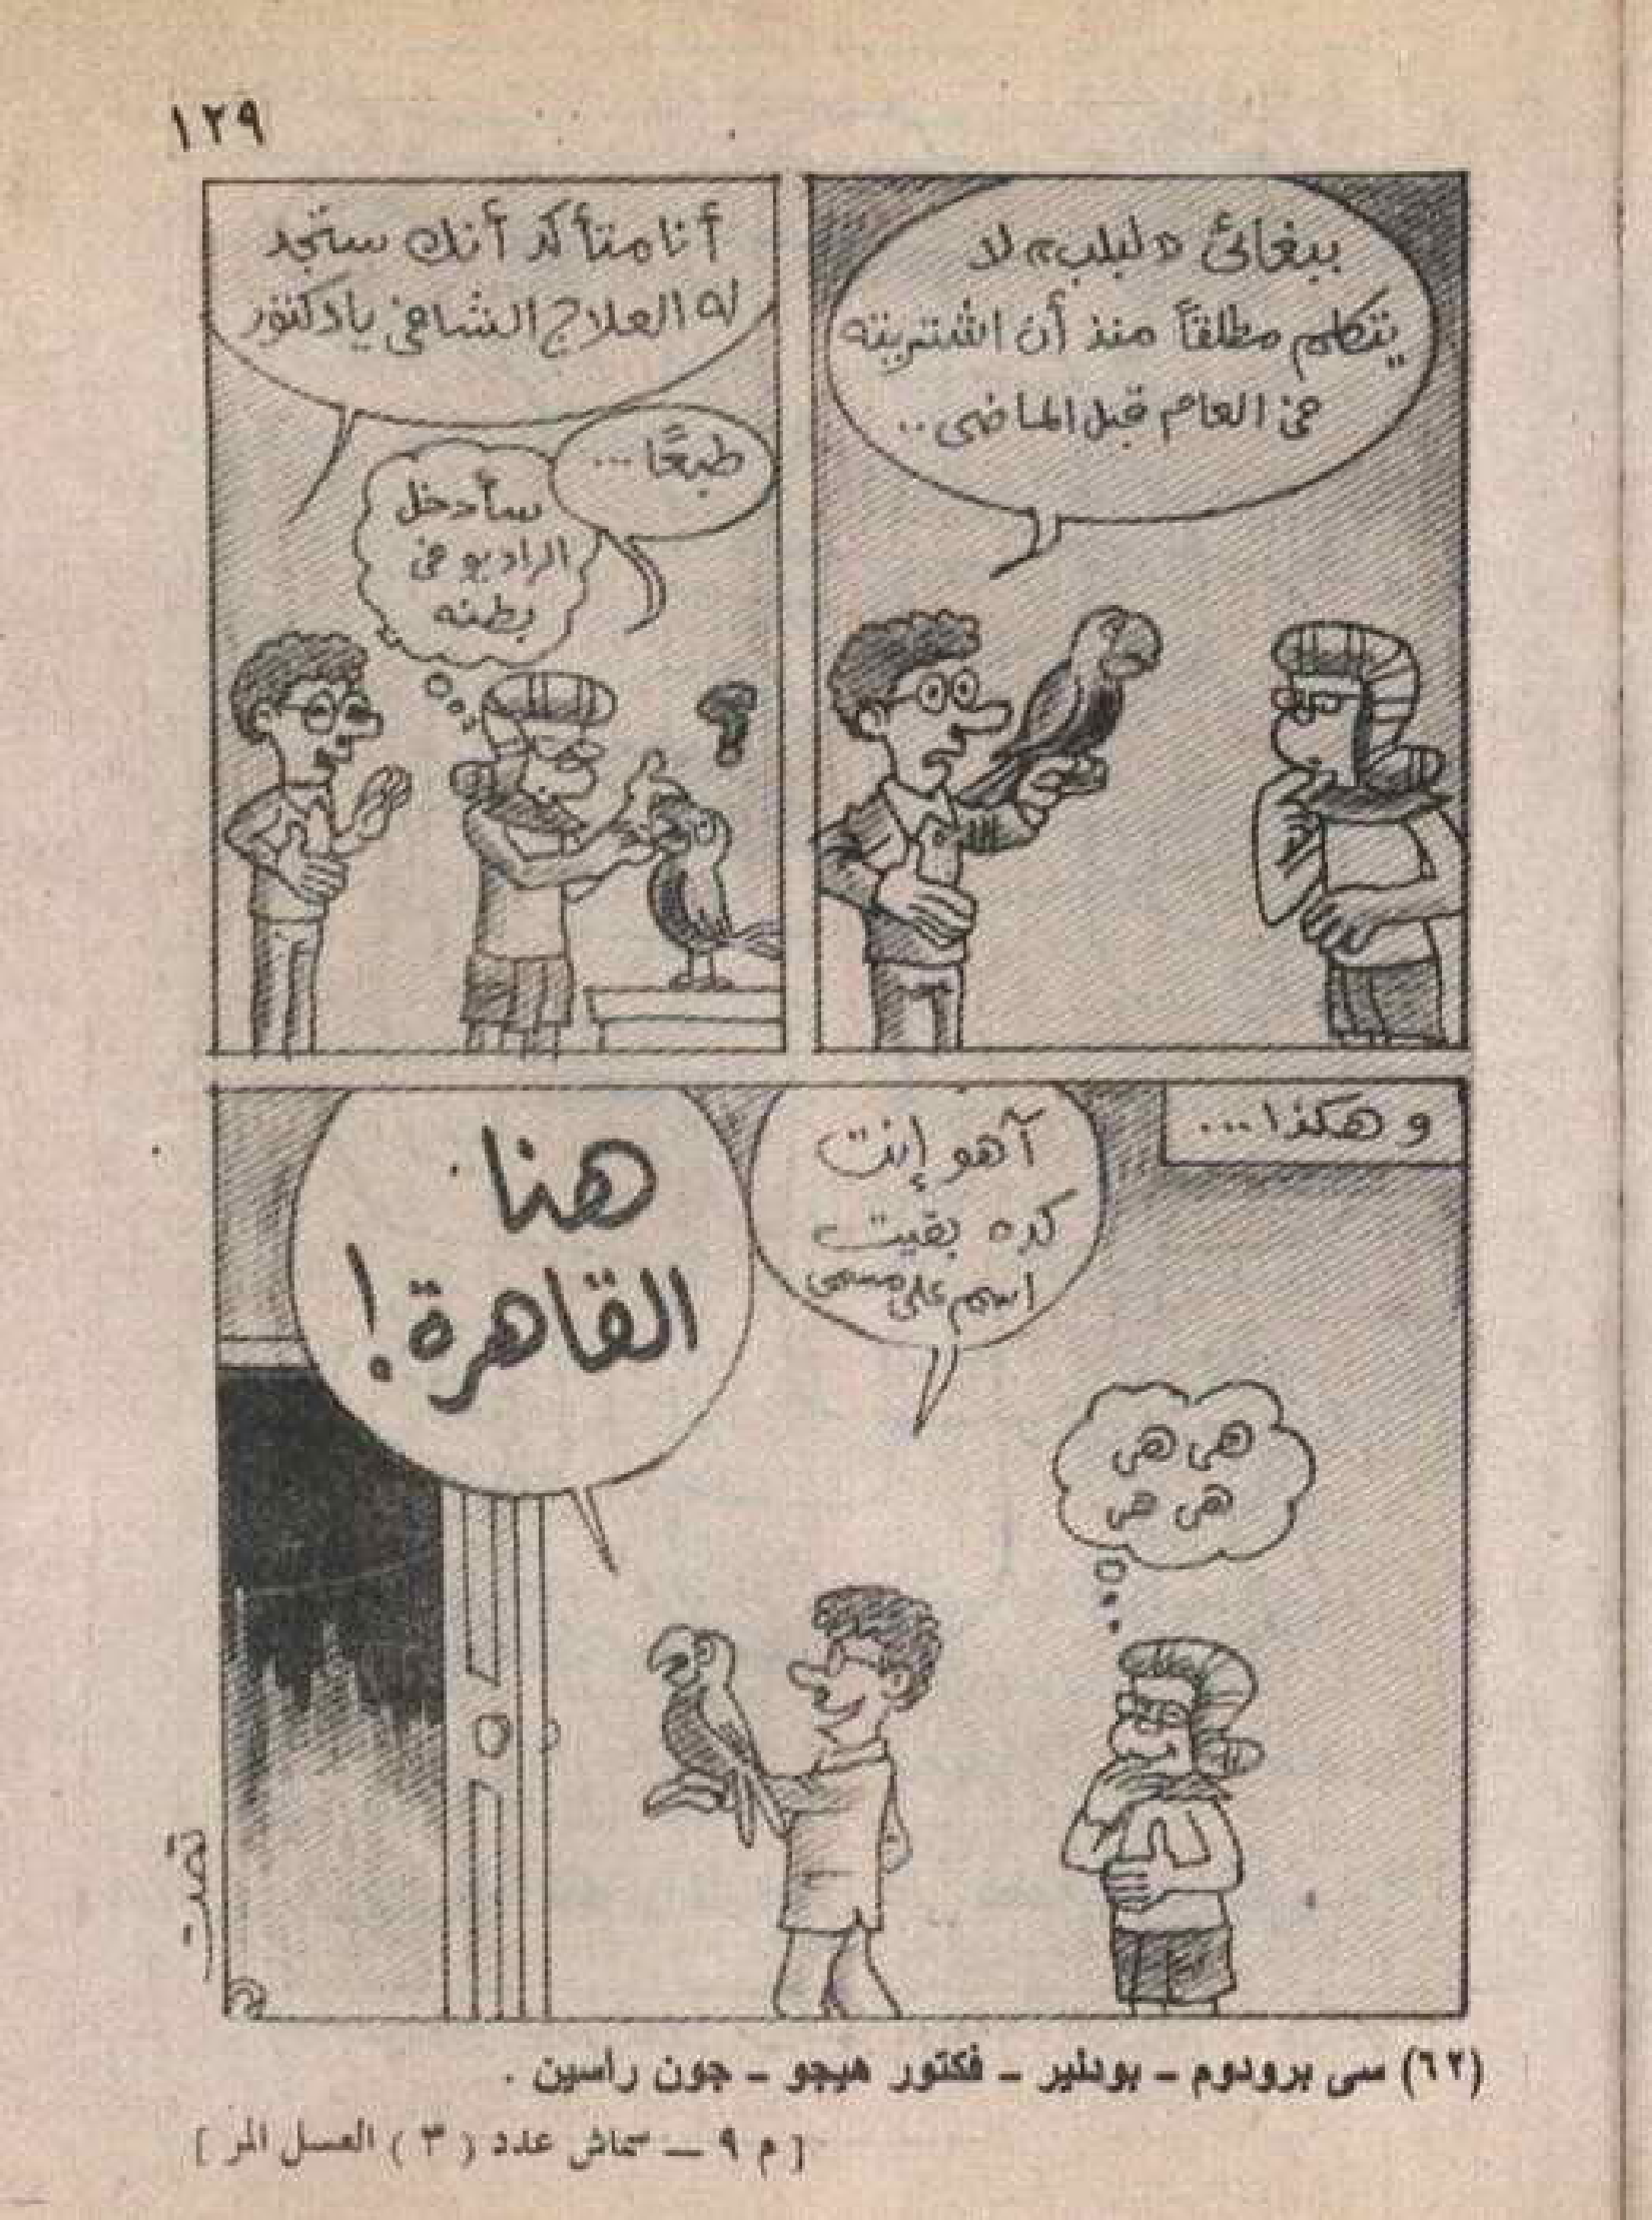 ١٢٩
ببغائى «لبلب» لا
يتكلم مطلقاً منذ أن اشتريته
فى العام قبل الماضى..
أنا متأكد أنك ستجد
له العلاج الشافى يا دكتور
طبعًا...
سأدخل
الراديو فى
بطنه
؟
و هكذا...
آهو إنت
كده بقيت
اسم على مسمى
هنا
القاهرة!
هى هى
هى هى
(٦٢) سى برودوم - بودلير - فكتور هيجو - جون راسين .
[ م ٩ – سماش عدد ( ٣ ) العسل المر ]